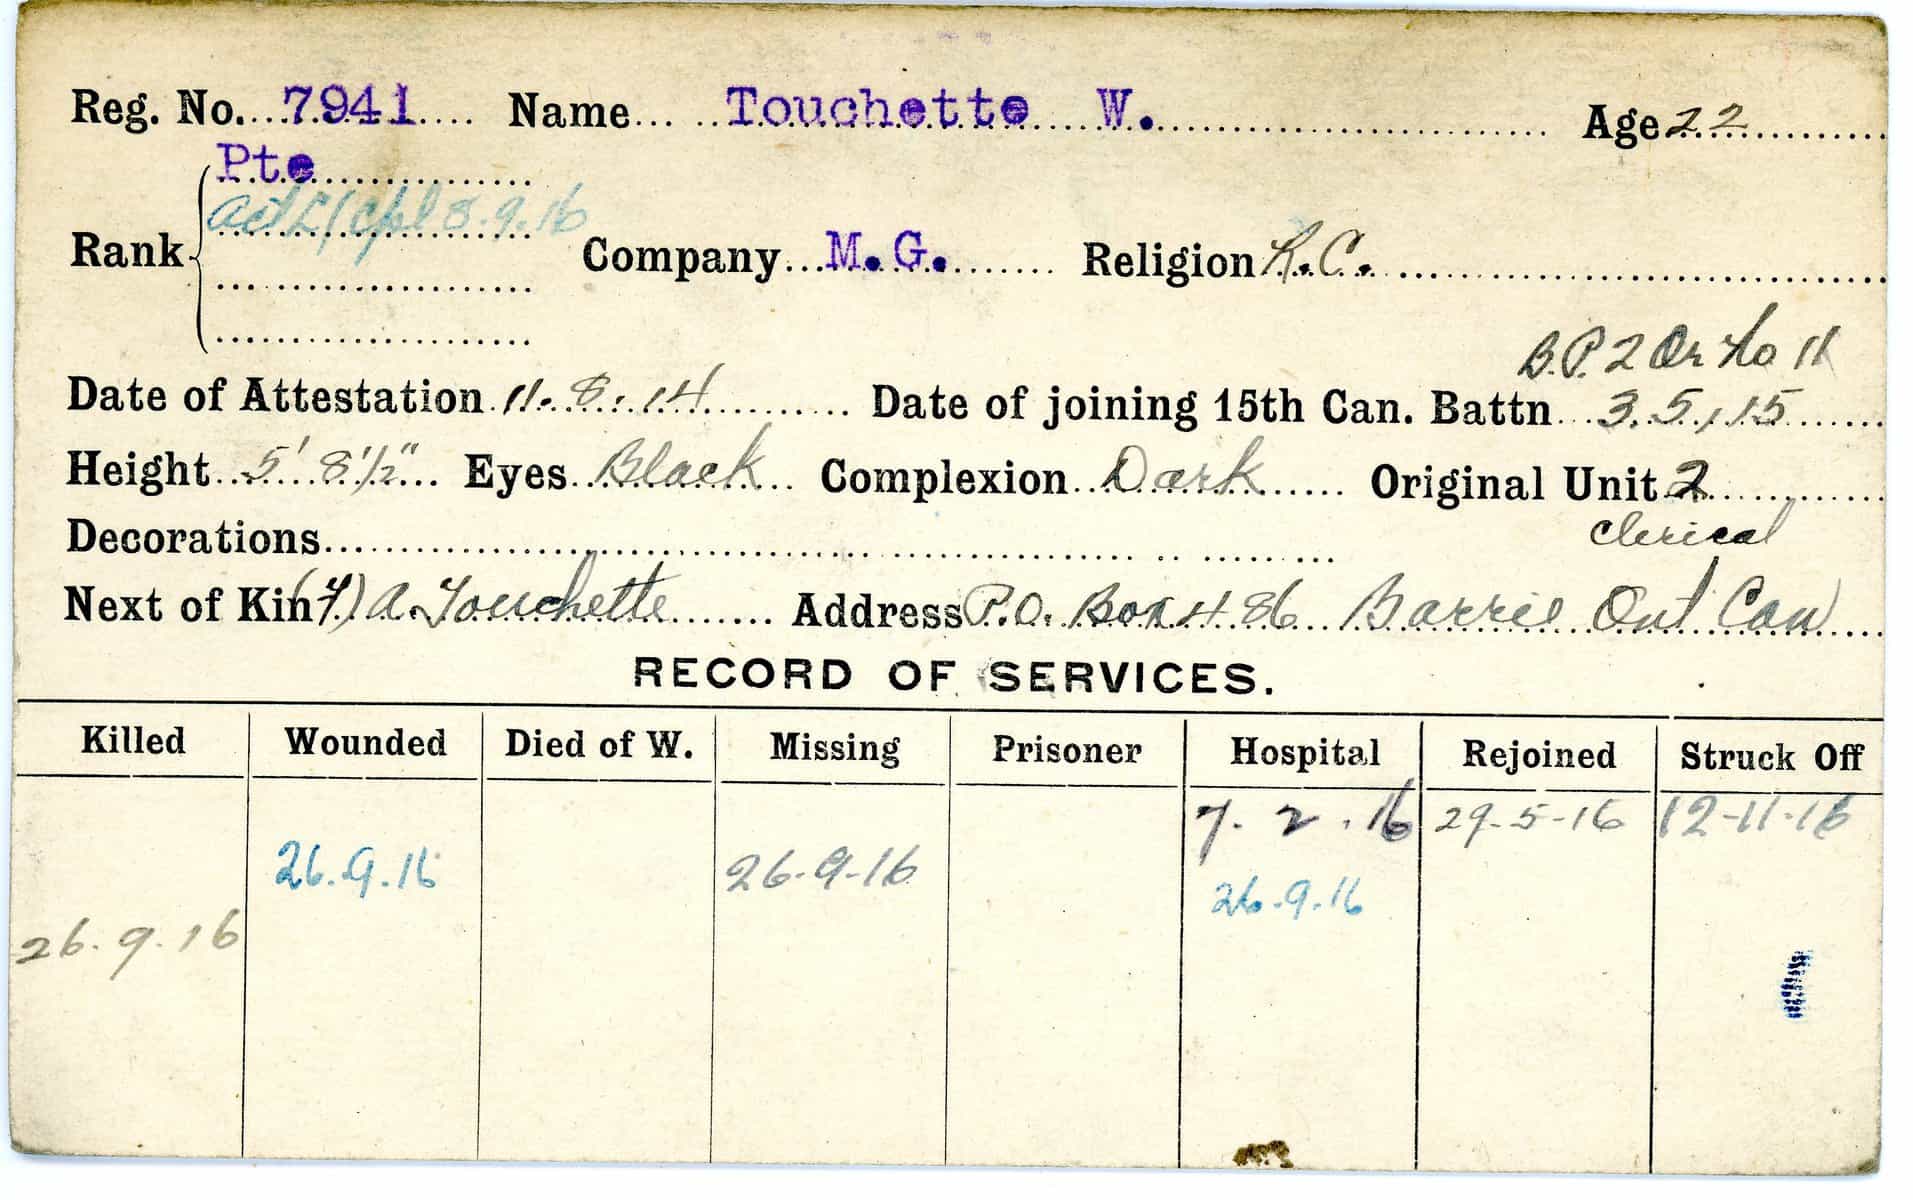 Reg. No. 7941 Name Touchette W. Age 22
Pte
Act L/Cpl 8.9.16
Rank Company M.G. Religion R.C.
B.P. 2 Or No 11
Date of Attestation 11.8.14 Date of joining 15th Can. Battn 3.5.15
Height 5' 8½" Eyes Black Complexion Dark Original Unit 2
Decorations clerical
Next of Kin (F) A. Touchette Address P.O. Box 486 Barrie Ont Can
RECORD OF SERVICES.
Killed Wounded Died of W. Missing Prisoner Hospital Rejoined Struck Off
7.2.16 29-5-16 12-11-16
26.9.16 26-9-16 26.9.16
26.9.16